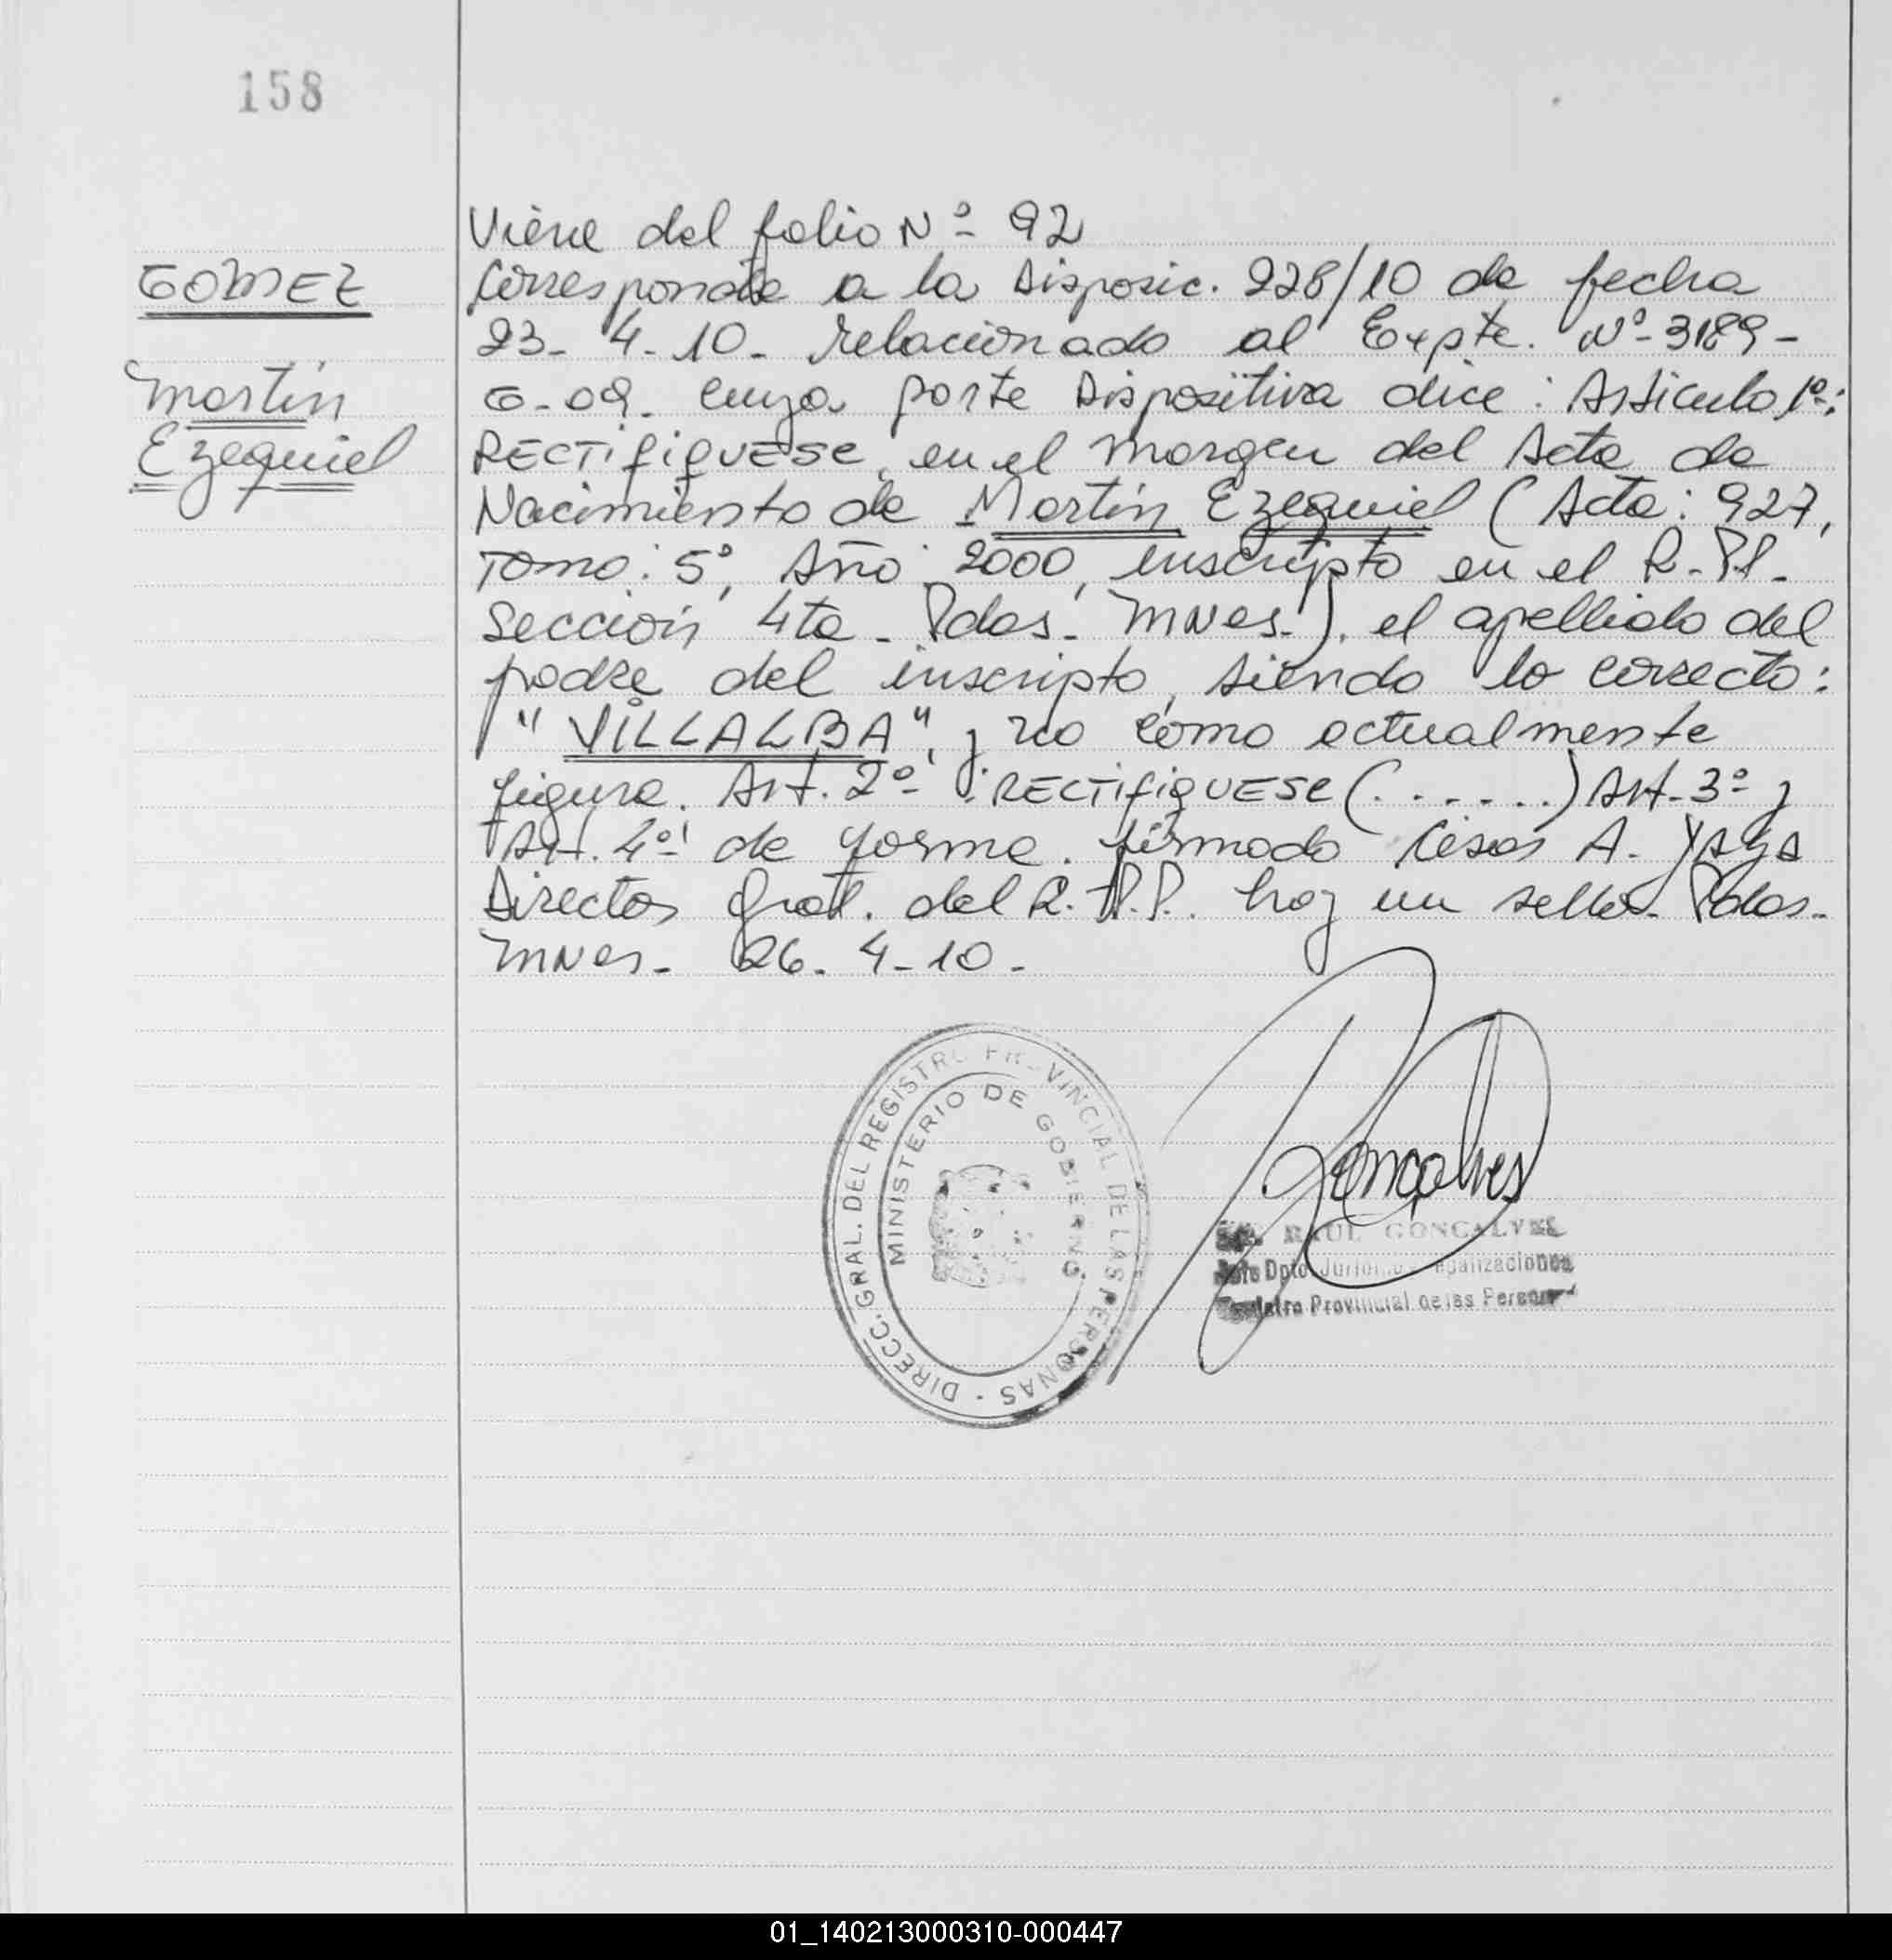 158
Viene del folio Nº 92
GOMEZ
Corresponde a la Disposic. 228/10 de fecha
23-4-10- relacionado al Expte. Nº-3189-
Martín
G-09. cuya parte Dispositiva dice: Articulo 1º:
Ezequiel
RECTIFIQUESE, en el margen del Acta de
Nacimiento de Martín Ezequiel (Acta: 927,
Tomo: 5º, Año 2000, inscripto en el R.P.P.
Sección 4ta - Pdas. Mnes.), el apellido del
padre del inscripto, siendo lo correcto:
"VILLALBA", y no como actualmente
figura. Art. 2º: RECTIFIQUESE (......) Art. 3º y
Art. 4º de forma. firmado César A.
Director Gral. del R.P.P. hay un sello. Pdas.
Mnes. 26-4-10-
DIRECC. GRAL. DEL REGISTRO PROVINCIAL DE LAS PERSONAS
MINISTERIO DE GOBIERNO
Goncalves
RAUL GONCALVES
Jefe Dpto. Legalizaciones
Registro Provincial de las Personas
01_140213000310-000447